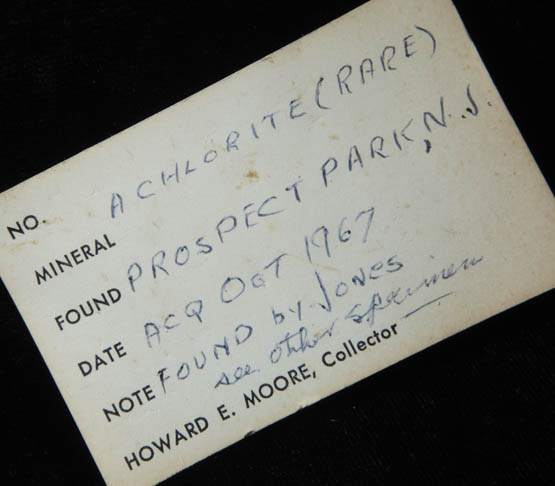 NO.
MINERAL A CHLORITE (RARE)
FOUND PROSPECT PARK, N.J.
DATE ACQ OCT 1967
NOTE FOUND by JONES
see other specimen
HOWARD E. MOORE, Collector